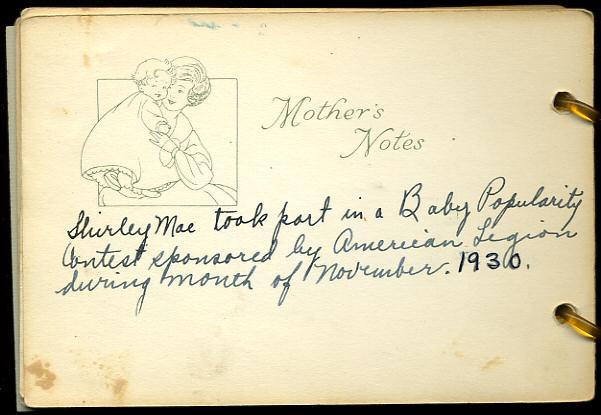 Mother's
Notes
Shirley Mae took part in a Baby Popularity
Contest sponsored by American Legion
during month of November. 1930.